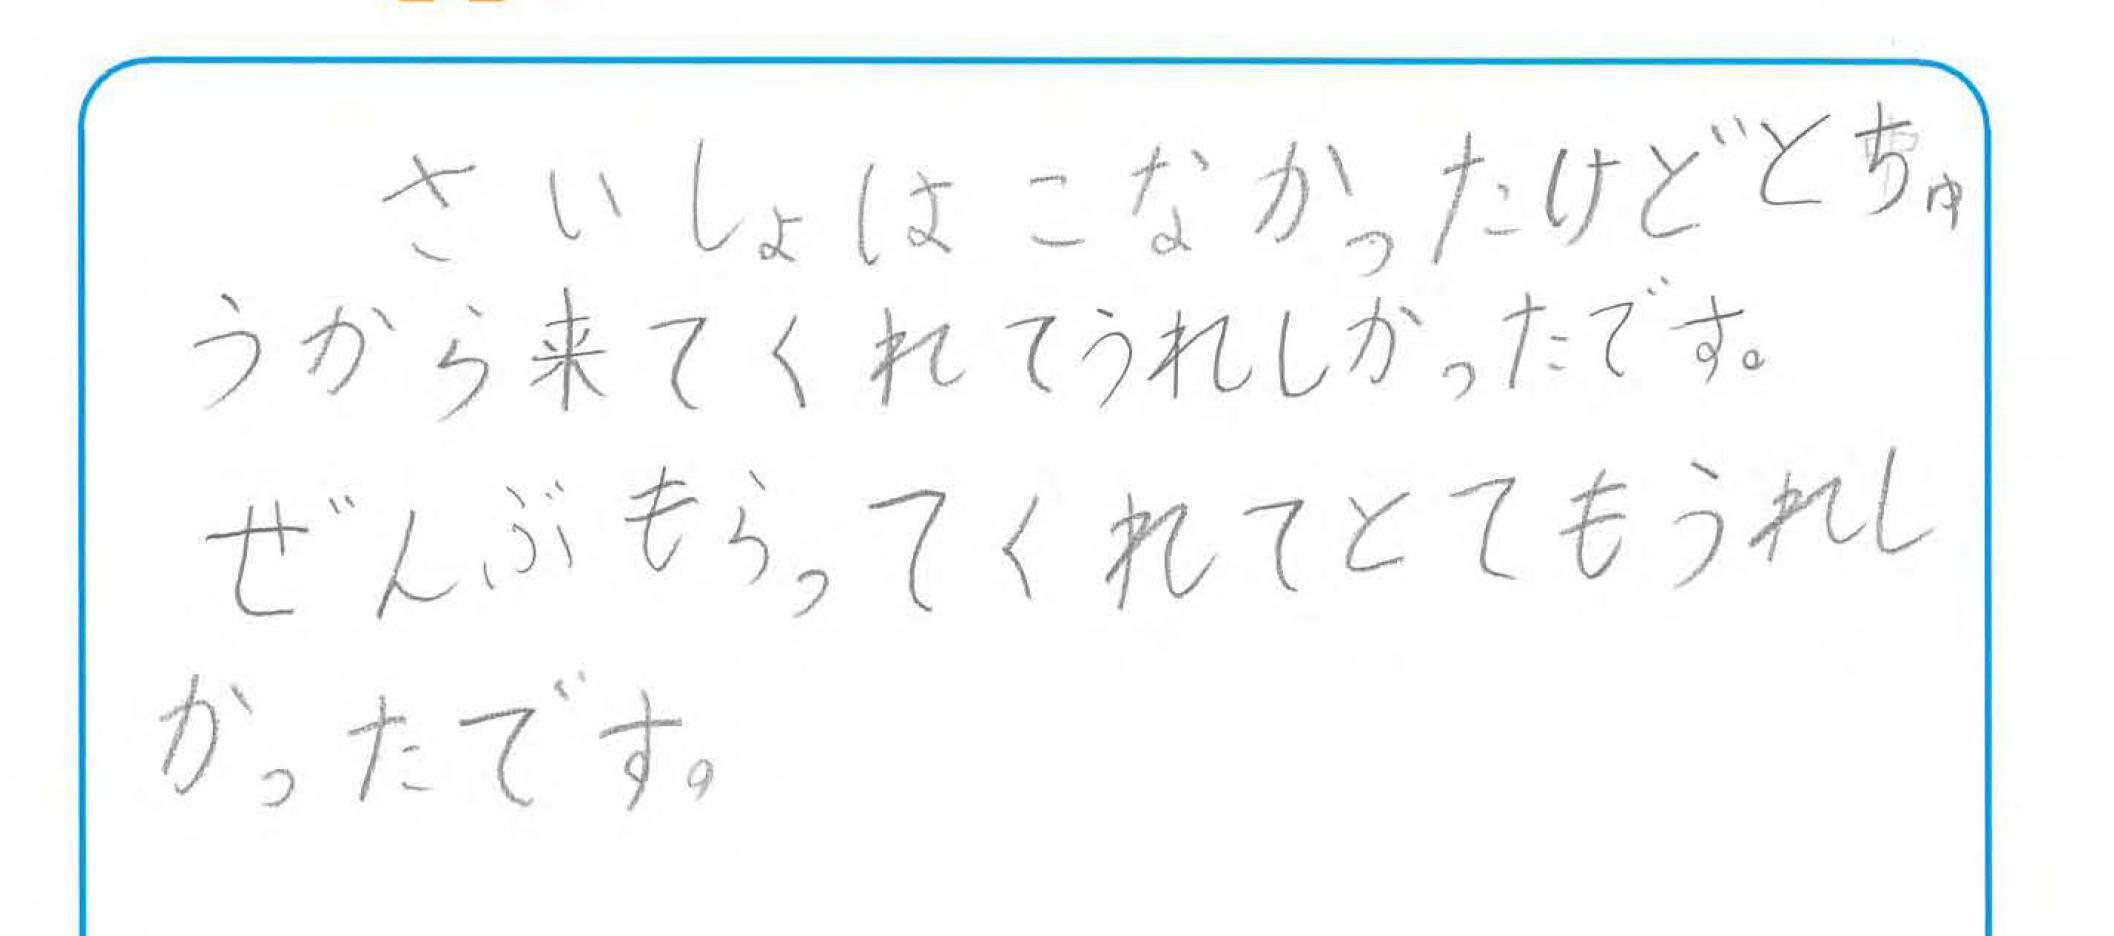 さいしょはこなかったけどとちゅ
うから来てくれてうれしかったです。
ぜんぶもらってくれてとてもうれし
かったです。